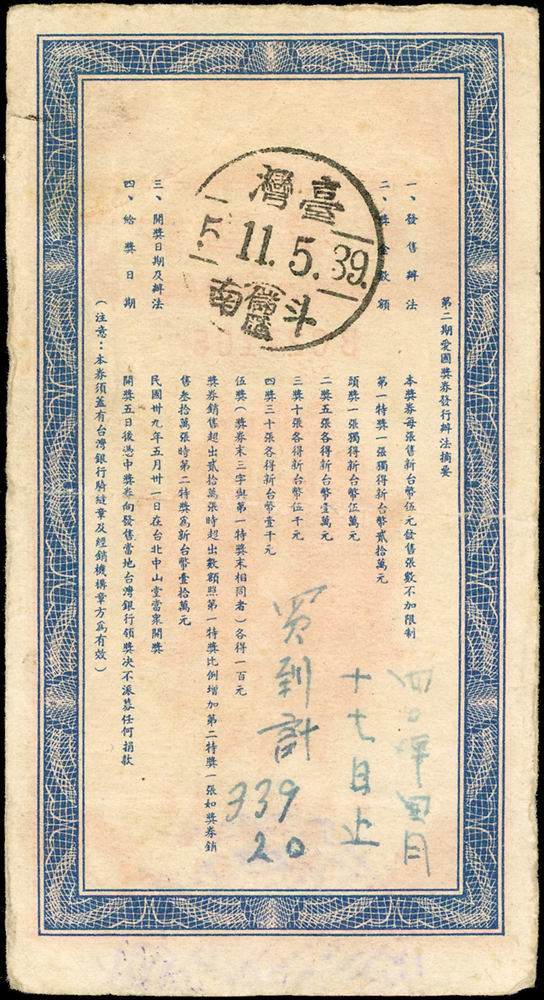 第二期愛國獎券發行辦法摘要
一、發售辦法
本獎券每張售新台幣伍元發售張數不加限制
二、獎金數額
第一特獎一張獨得新台幣貳拾萬元
頭獎一張獨得新台幣伍萬元
二獎五張各得新台幣壹萬元
三獎十張各得新台幣伍千元
四獎三十張各得新台幣壹千元
伍獎(獎券末三字與第一特獎末相同者)各得一百元
獎券銷售超出貳拾萬張時超出數額照第一特獎比例增加第二特獎一張如獎券銷
售叁拾萬張時第二特獎爲新台幣壹拾萬元
三、開獎日期及辦法
民國卅九年五月卅一日在台北中山堂當衆開獎
四、給獎日期
開獎五日後憑中獎券向發售當地台灣銀行領獎决不派募任何捐款
(注意:本券須蓋有台灣銀行騎縫章及經銷機構章方爲有效)
臺灣
5
11.5.39.
斗南
四〇年四月
十七日止
買到計
339
20